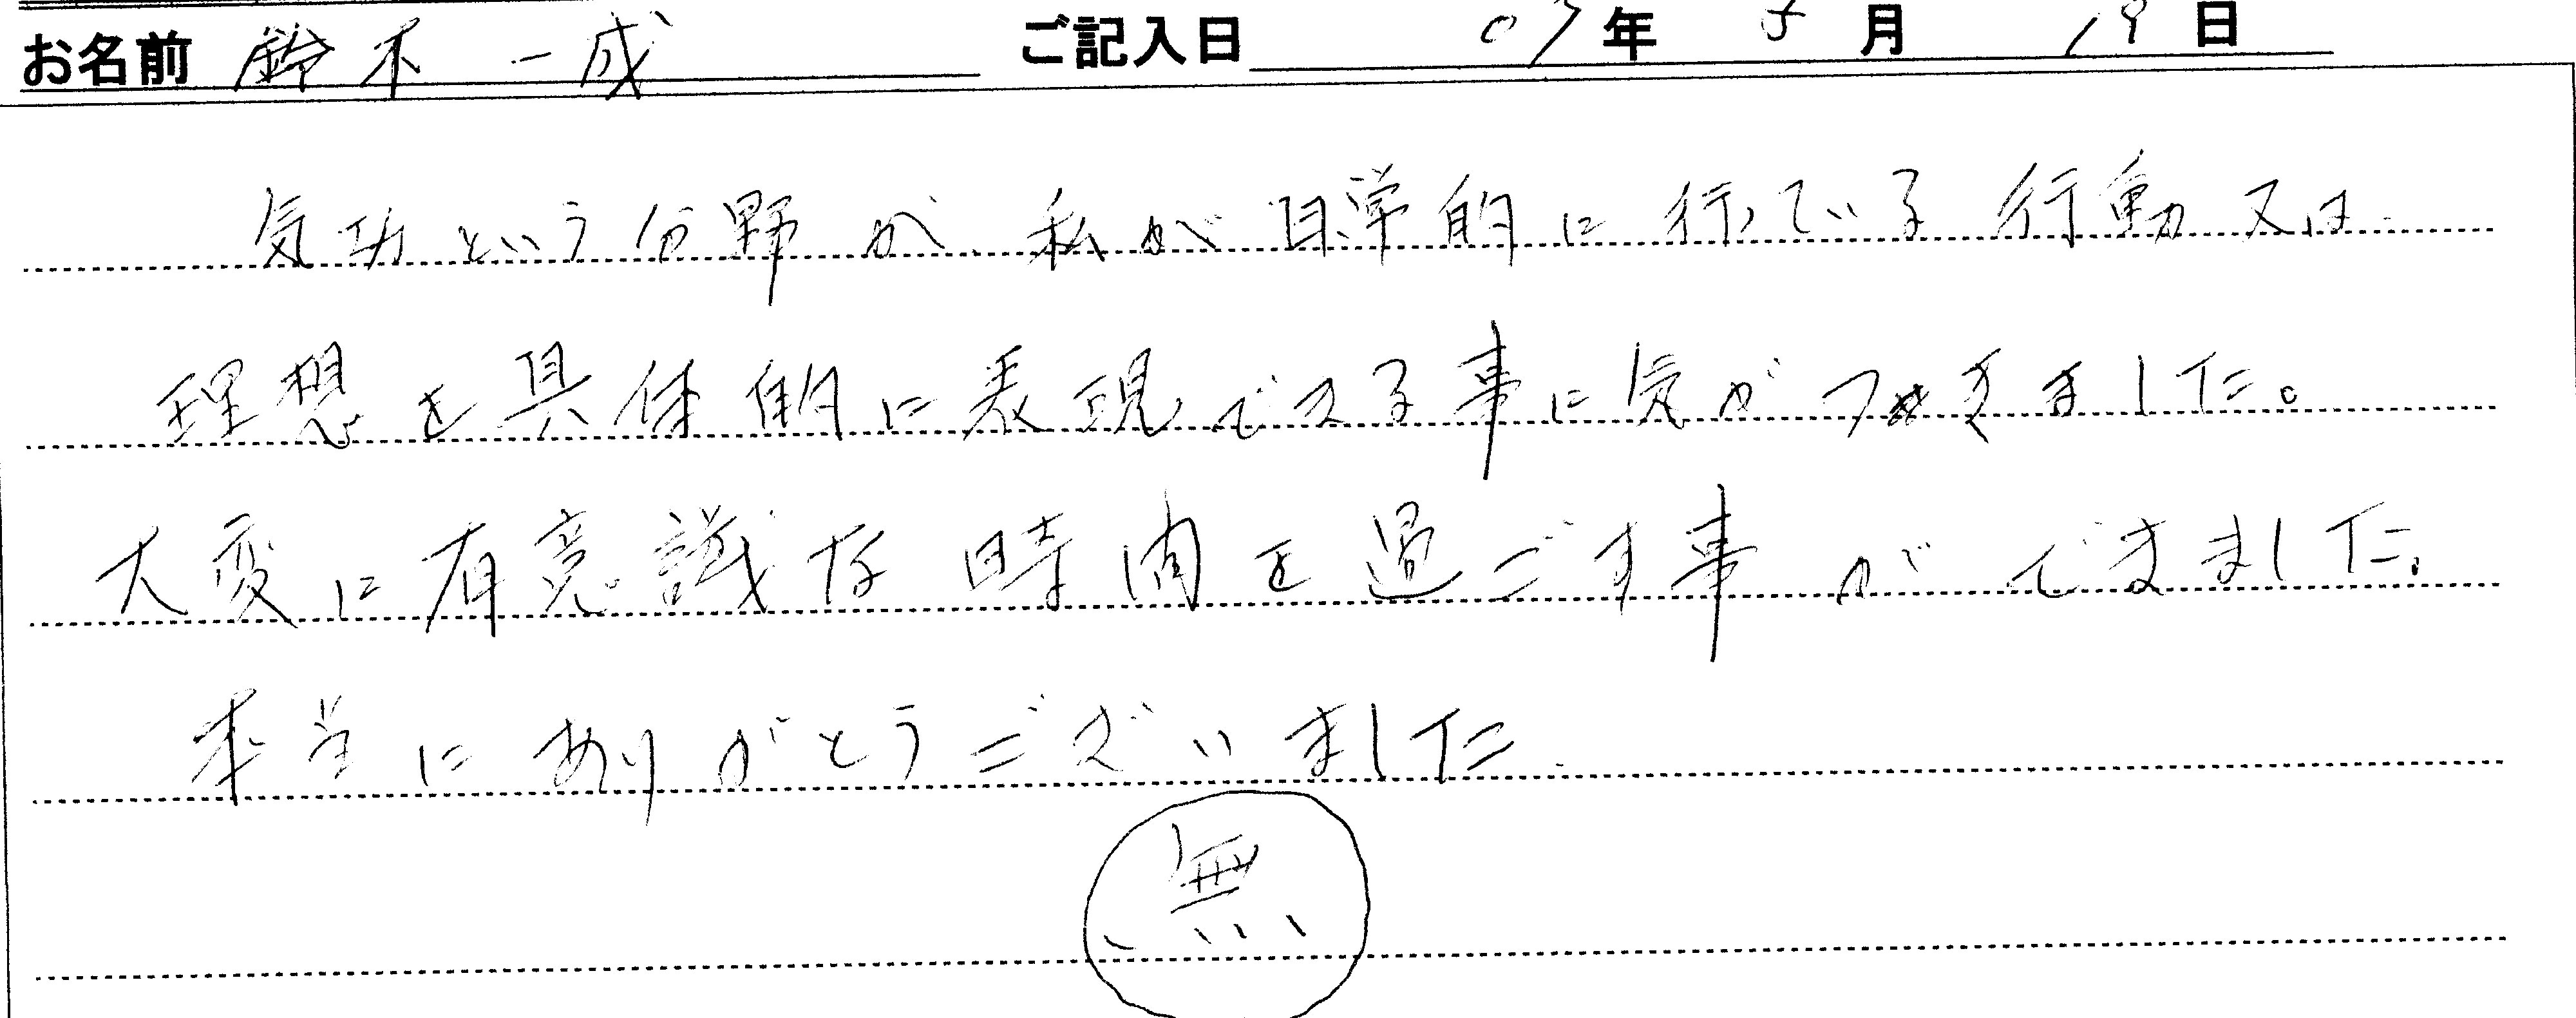 お名前 鈴木一成 ご記入日 07年5月19日
気功という分野が、私が日常的に行っている行動又は
理想を具体的に表現できる事に気がつきました。
大変に有意識な時間を過ごす事ができました。
本当にありがとうございました.
無